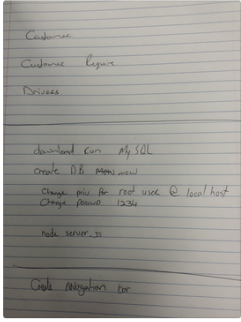 Customer
Customer Repairs
Drivers
download run MySQL
create DB
Change priv for root user @ localhost
Change password 1234
node server.js
Create navigation bar